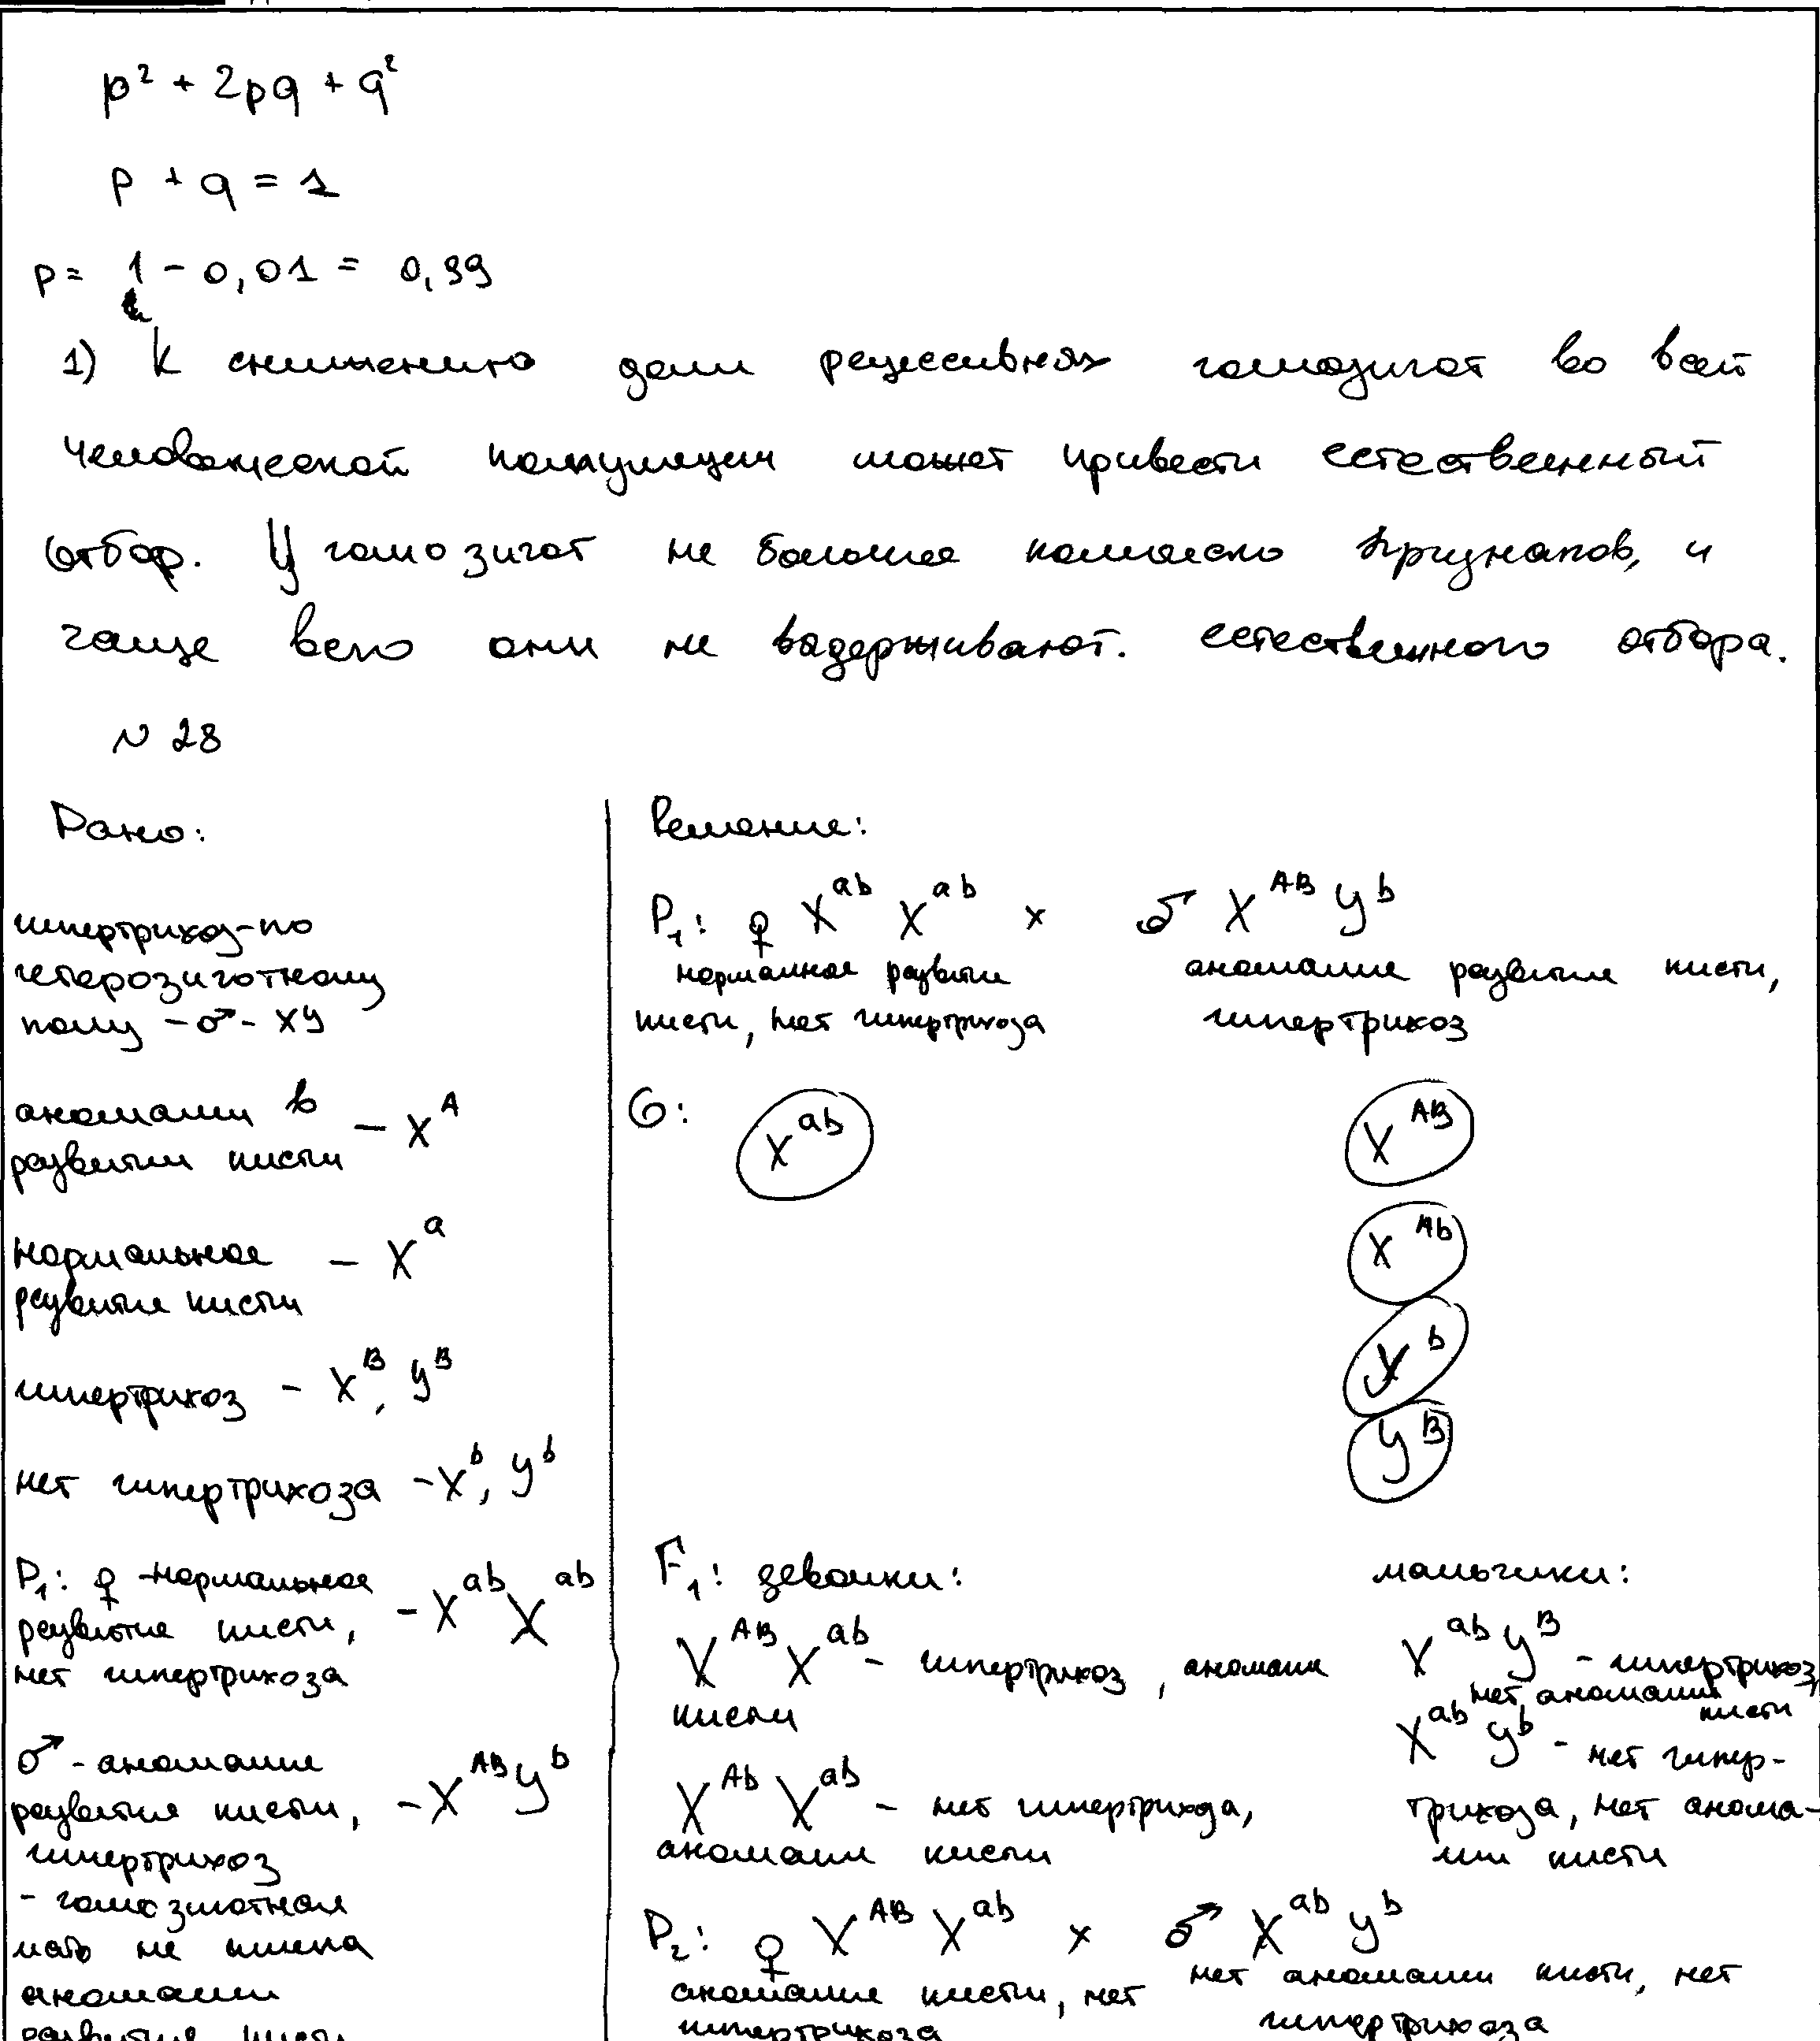 p² + 2pq + q²
p + q = 1
p = 1 - 0,01 = 0,99
1) К снижению доли рецессивных гомозигот во всей
человеческой популяции может привести естественный
отбор. У гомозигот не большое количество признаков, и
чаще всего они не выдерживают. естественного отбора.
№ 28
Дано:
гипертрихоз-по
гетерозиготному
полу - ♂ - XY
аномалии в
развитии кисти - X^A
нормальное
развитие кисти - X^a
гипертрихоз - X^B, Y^B
нет гипертрихоза - X^b, Y^b
P₁: ♀ -нормальное
развитие кисти, - X^ab X^ab
нет гипертрихоза
♂ - аномалие
развития кисти, - X^AB Y^b
гипертрихоз
- гомозиготная
мать не имела
аномалии
развития кисти
Решение:
P₁: ♀ X^ab X^ab x ♂ X^AB Y^b
нормальное развитие кисти, нет гипертрихоза
аномалие развития кисти, гипертрихоз
G: X^ab
X^AB
X^Ab
Y^b
Y^B
F₁: девочки:
X^AB X^ab - гипертрихоз, аномалия
кисти
X^Ab X^ab - нет гипертрихоза,
аномалия кисти
мальчики:
X^ab Y^B - гипертрихоз,
нет аномалии
кисти
X^ab Y^b - нет гипер-
трихоза, нет анома-
лии кисти
P₂: ♀ X^AB X^ab x ♂ X^ab Y^b
аномалие кисти, нет гипертрихоза
нет аномалии кисти, нет
гипертрихоза